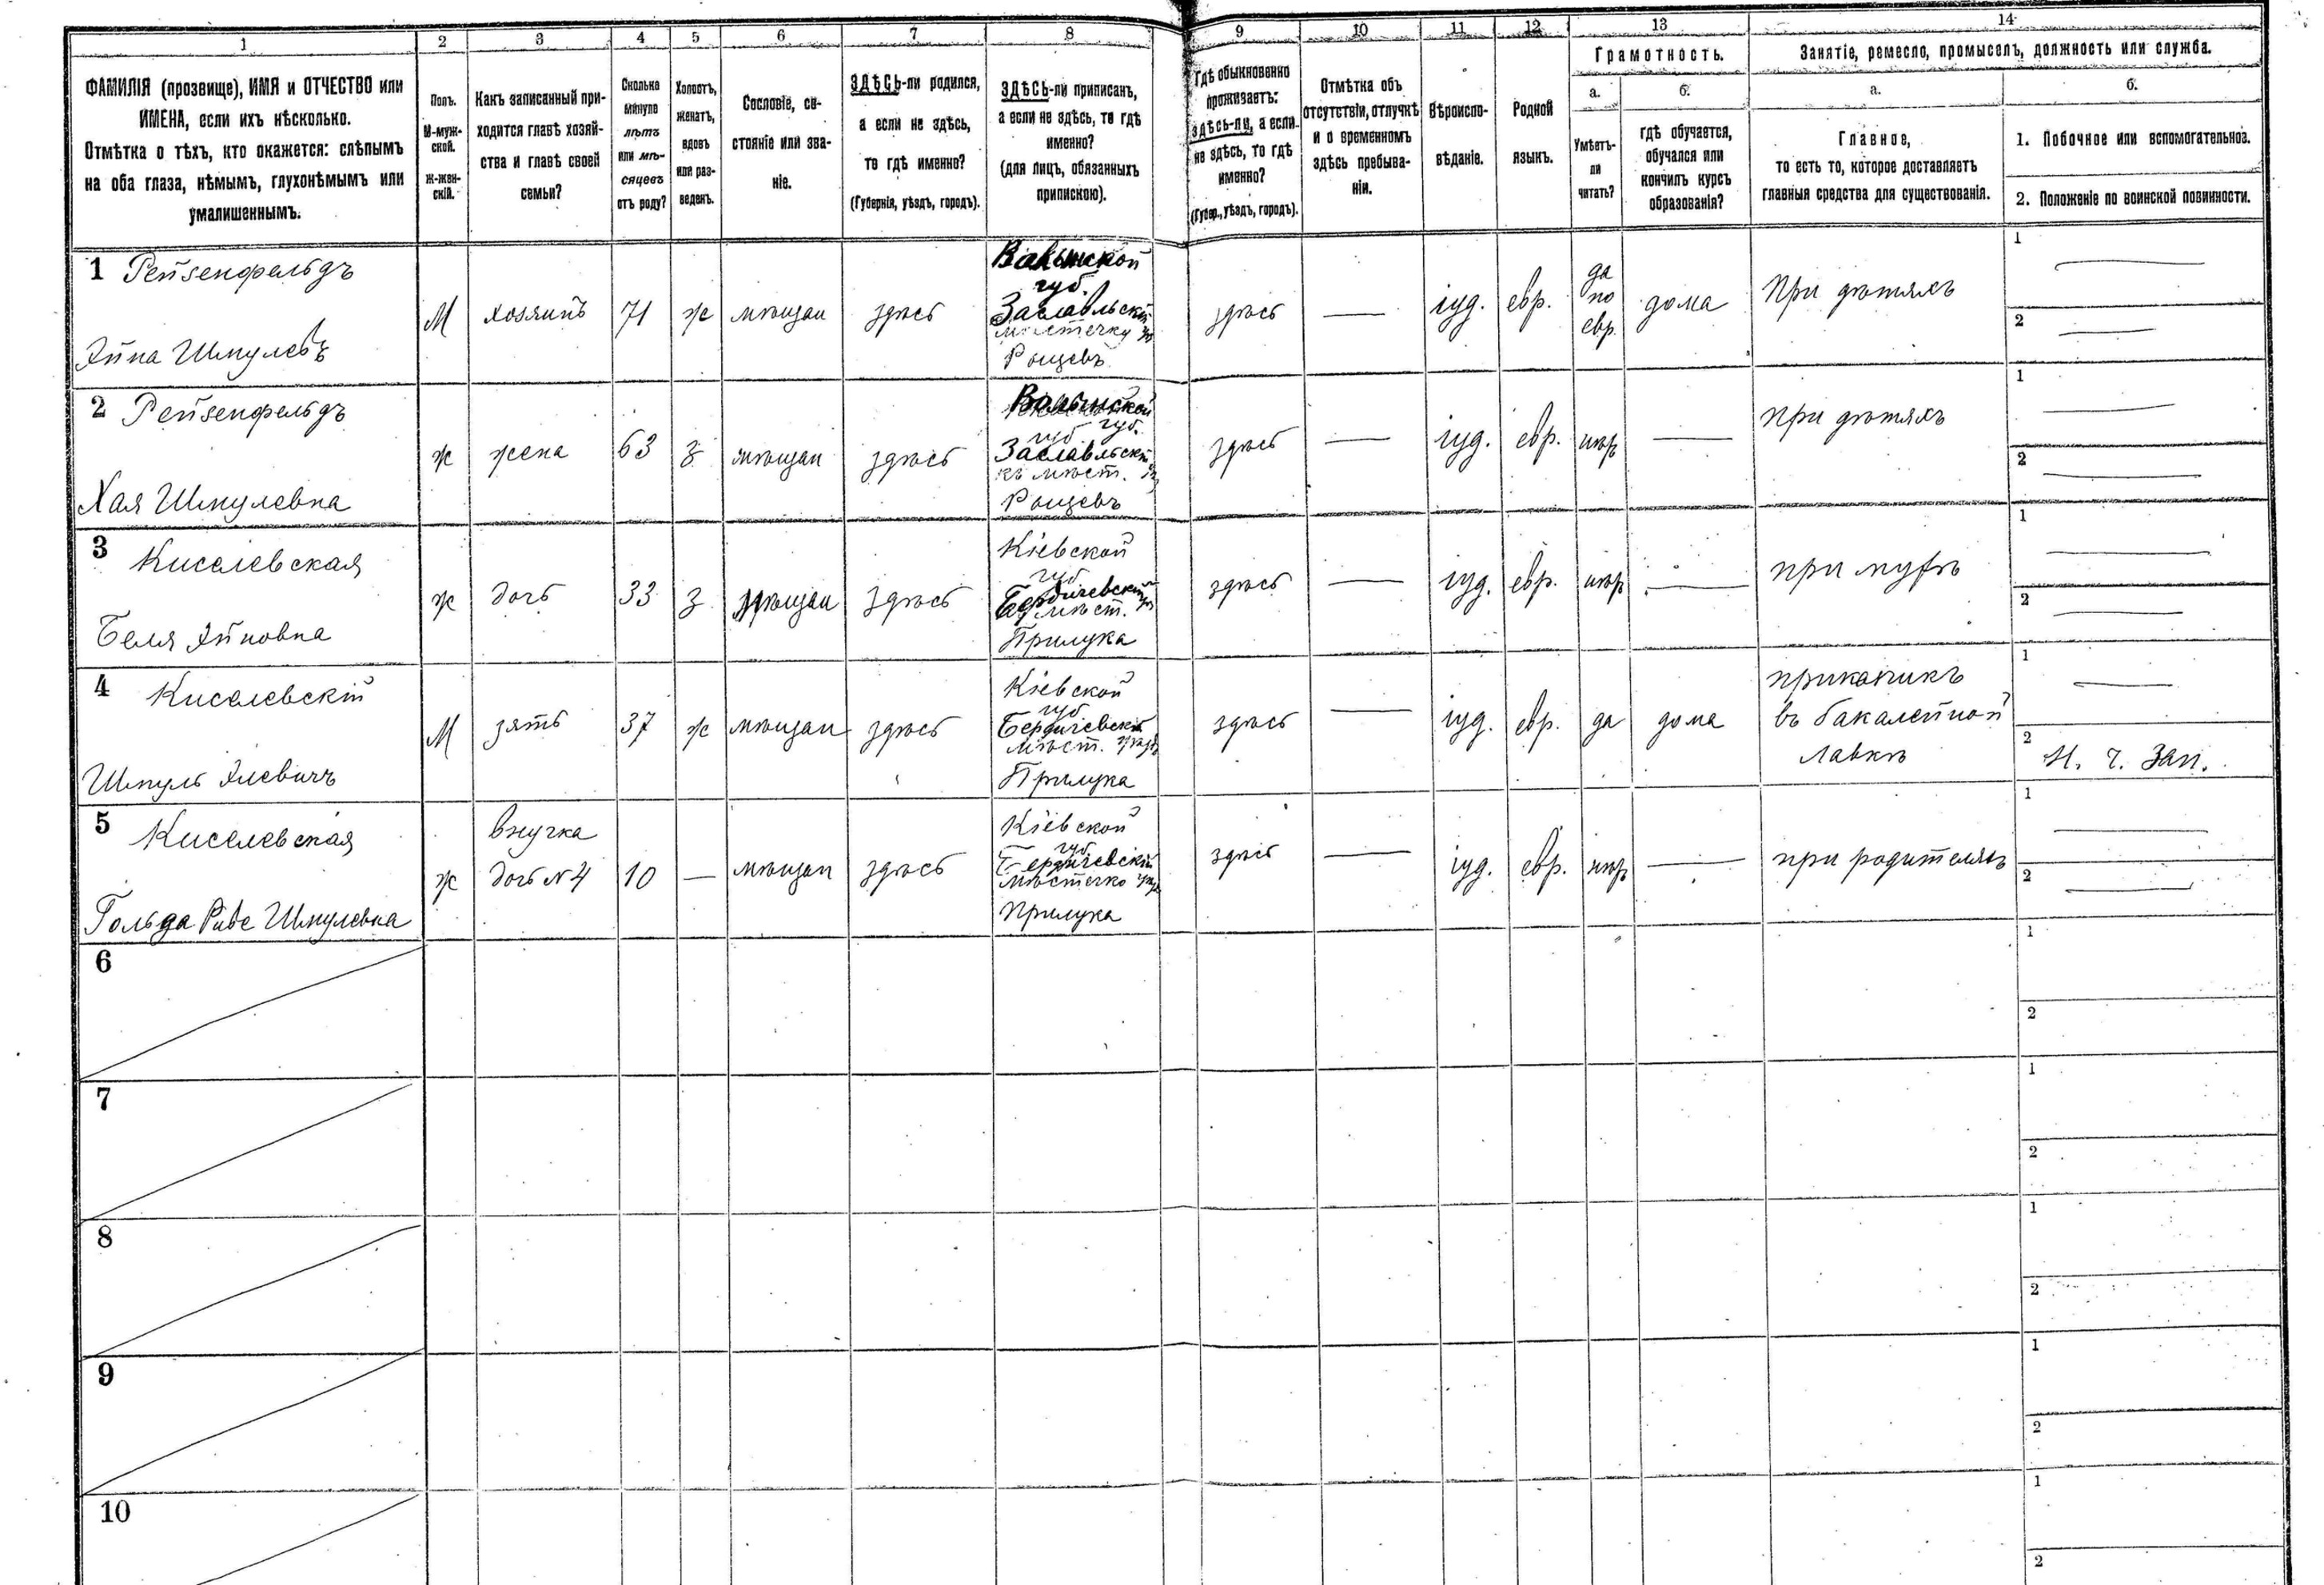 1 2 3 4 5 6 7 8 9 10 11 12 13 14
ФАМИЛІЯ (прозвище), ИМЯ и ОТЧЕСТВО или
ИМЕНА, если ихъ нѣсколько.
Отмѣтка о тѣхъ, кто окажется: слѣпымъ
на оба глаза, нѣмымъ, глухонѣмымъ или
умалишеннымъ.
Полъ.
М-муж-
ской.
Ж-жен-
скій.
Какъ записанный при-
ходится главѣ хозяй-
ства и главѣ своей
семьи?
Сколько
минуло
лѣтъ
или мѣ-
сяцевъ
отъ роду?
Холостъ,
женатъ,
вдовъ
или раз-
веденъ.
Сословіе, со-
стояніе или зва-
ніе.
ЗДѢСЬ-ли родился,
а если не здѣсь,
то гдѣ именно?
(Губернія, уѣздъ, городъ).
ЗДѢСЬ-ли приписанъ,
а если не здѣсь, то гдѣ
именно?
(для лицъ, обязанныхъ
припискою).
Гдѣ обыкновенно
проживаетъ:
здѣсь-ли, а если
не здѣсь, то гдѣ
именно?
(Губер., уѣздъ, городъ).
Отмѣтка объ
отсутствіи, отлучкѣ
и о временномъ
здѣсь пребыва-
ніи.
Вѣроиспо-
вѣданіе.
Родной
языкъ.
Грамотность.
а.
Умѣетъ-
ли
читать?
б.
гдѣ обучается,
обучался или
кончилъ курсъ
образованія?
Занятіе, ремесло, промыселъ, должность или служба.
а.
Главное,
то есть то, которое доставляетъ
главныя средства для существованія.
б.
1. Побочное или вспомогательное.
2. Положеніе по воинской повинности.
1 Рейзенфельдъ
Эйна Шмулевъ
М
хозяинъ
71
ж
мѣщан
здѣсь
Волынской
губ.
Заславльскій
мѣстечку
здѣсь
—
іуд.
евр.
да
по
евр.
дома
При дѣтяхъ
1 —
2 —
2 Рейзенфельдъ
Хая Шмулевна
ж
жена
63
з
мѣщан
здѣсь
Волынской
губ.
Заславльскій
мѣст.
здѣсь
—
іуд.
евр.
нѣт
—
При дѣтяхъ
1 —
2 —
3 Киселевская
Беля Эйновна
ж
дочь
33
з
мѣщан
здѣсь
Кіевской
губ
Бердичевскій
мѣст.
Прилука
здѣсь
—
іуд.
евр.
нѣт
—
при мужѣ
1 —
2 —
4 Киселевскій
Шмуль Элевичъ
М
зять
37
ж
мѣщан
здѣсь
Кіевской
губ
Бердичевскій
мѣст.
Прилука
здѣсь
—
іуд.
евр.
да
дома
приказчикъ
въ бакалейной
лавкѣ
1 —
2 Н. ч. Зап.
5 Киселевская
Гольда Риве Шмулевна
ж
внучка
дочь №4
10
—
мѣщан
здѣсь
Кіевской
губ.
Бердичевскій
мѣстечко
Прилука
здѣсь
—
іуд.
евр.
нѣт
—
при родителяхъ
1 —
2 —
6
1
2
7
1
2
8
1
2
9
1
2
10
1
2